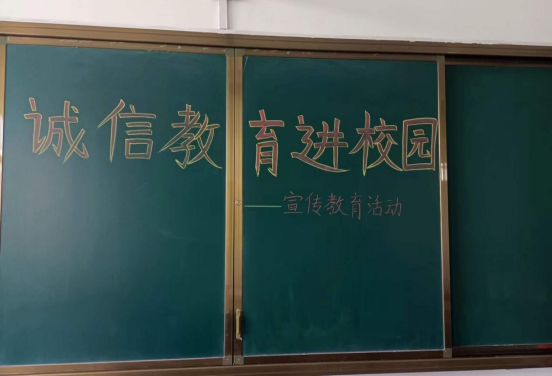 诚信教育进校园
——宣传教育活动